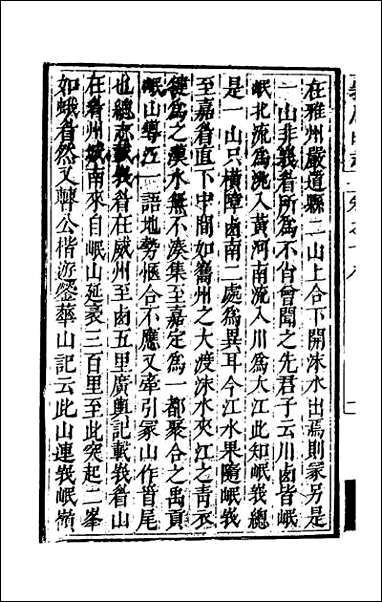 在雅州嚴道縣二山上合下開沫水出焉則冡另是
一山非峩眉所爲不佞曾聞之先君子云川鹵皆岷
岷北流爲洮入黃河南流入川爲大江此知岷峩總
是一山只橫障鹵南二處爲異耳今江水果隨岷峩
至嘉眉直下中間如雟州之大渡沫水夾江之青衣
犍爲之漢水無不湊集至嘉定爲一都聚合之禹貢
岷山導江一語地勢恆合不應又牽引冡山作首尾
也總志載峩眉在威州至鹵五里廣輿記載峩眉山
在眉州城南來自岷山延袤三百里至此突起二峯
如蛾眉然又韓公楷遊峩山記云此山連峩岷嶺